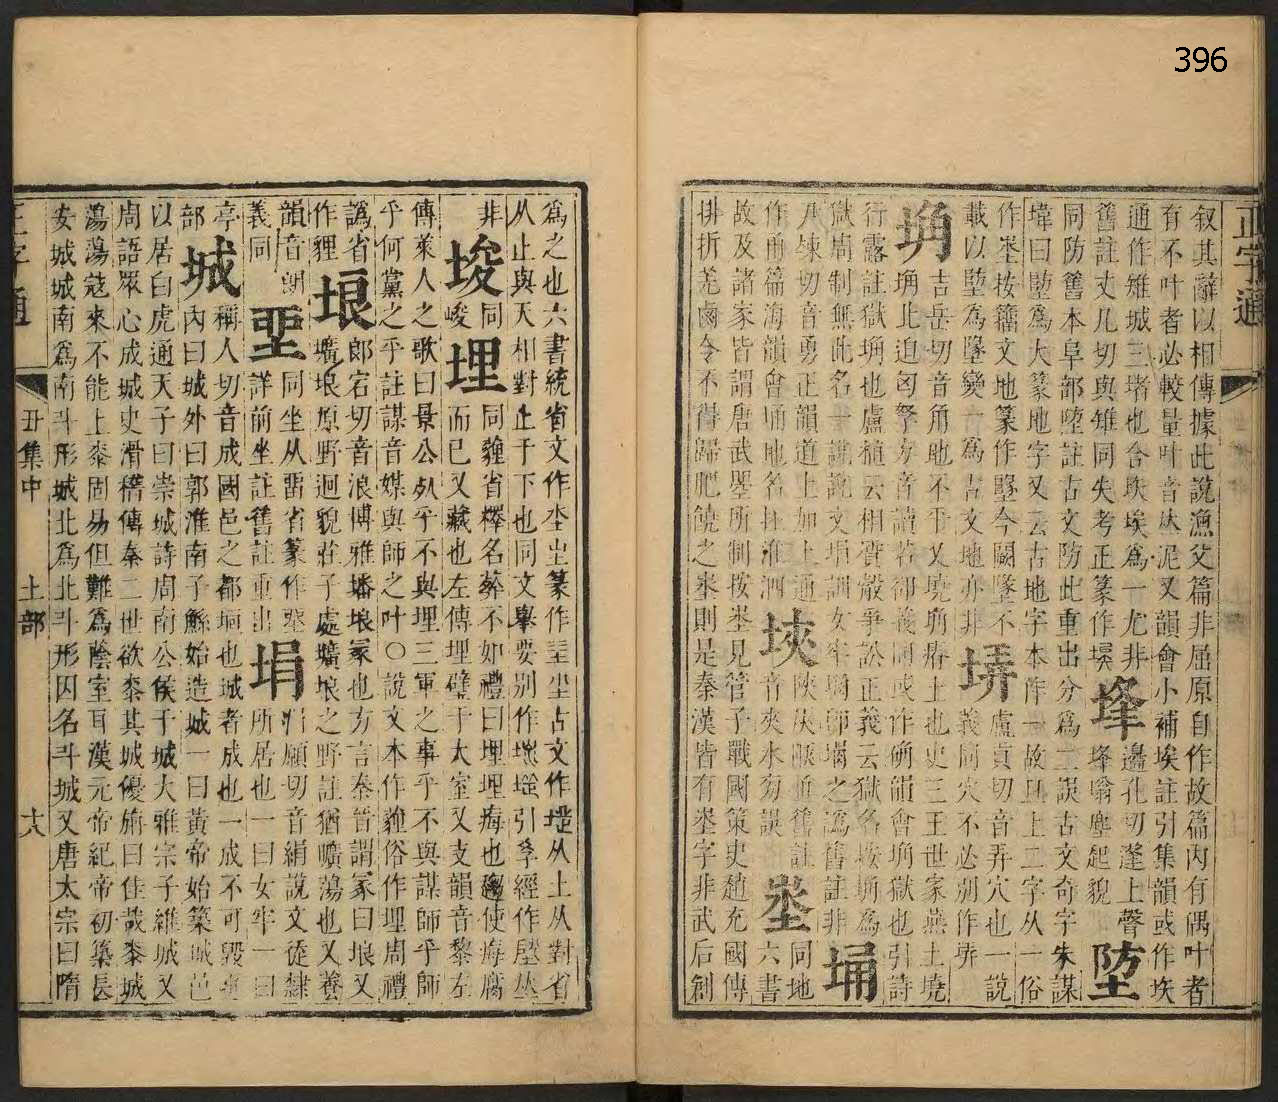 396
正字通
叙其辭以相傳據此說漁父篇非屈原自作故篇內有偶叶者
有不叶者必較量叶音从泥又韻會小補埃註引集韻或作埃
通作雉城三堵也合埃埃為一尤非 埄 邊孔切蓬上聲埄塕塵起貌 墮
舊註丈几切與雉同失考正篆作
同防舊本阜部墮註古文防此重出分為二誤古文奇字朱謀
㙔曰墬為大篆地字又云古地字本作一故且上二字从一俗
作埊按籀文地篆作墬今闕墬不
載以墬為墜變一為古文地亦非 㙄 盧貢切音弄穴也一說義同穴不必別作㙄
埆 吉岳切音角地不平又墝埆瘠土也史三王世家燕土墝
埆北迫匈奴方音讀若御義同或作䧹韻會埆獄也引詩
行露註獄埆也盧植云相質觳爭訟正義云獄名埆按埆為
獄周制無此名 說文埍訓女牢埆卽埍之譌舊註非 埇
尹竦切音勇正韻道上如土通
作甬篇海韻會埇地名在淮泗 埉 陜从陜並舊註音夾水旁誤 埊 同地六書
故及諸家皆謂唐武曌所制按埊見管子戰國策史趙充國傳
排折羌鹵令不得歸肥饒之埊則是秦漢皆有埊字非武后創
為之也六書統省文作坔坐篆作坴坐古文作堼从土从對省
从止與天相對止于下也同文舉要別作墬引孝經作墬丛
非 埈 同峻 埋 同薶省檡名葬不如禮曰埋埋痗也趨使痗腐
而已又藏也左傳埋璧于太室又支韻音黎左
傳萊人之歌曰景公死乎不與埋三軍之事乎不與謀師乎師
乎何黨之乎註謀音媒與師之叶〇說文本作薶俗作埋周禮
譌省作貍 埌 郎宕切音浪博雅墦埌冢也方言秦晉謂冢曰埌又
壙埌原野迥貌莊子處壙埌之野註猶曠蕩也又養
韻音朗義同 堲 同坐从畱省篆作
詳前坐註舊註重出 埍 畎願切音絹說文徒隸
所居也一曰女牢一曰
亭部 城 稱人切音成國邑之都垣也城者成也一成不可毀也
內曰城外曰郭淮南子鯀始造城一曰黃帝始築城邑
以居白虎通天子曰崇城詩周南公侯干城大雅宗子維城又
周語眾心成城史滑稽傳秦二世欲桼其城優旃曰佳哉桼城
蕩蕩寇來不能上桼固易但難為蔭室耳漢元帝紀帝初築長
安城城南為南斗形城北為北斗形因名斗城又唐太宗曰隋
正字通
丑集中
土部
十八